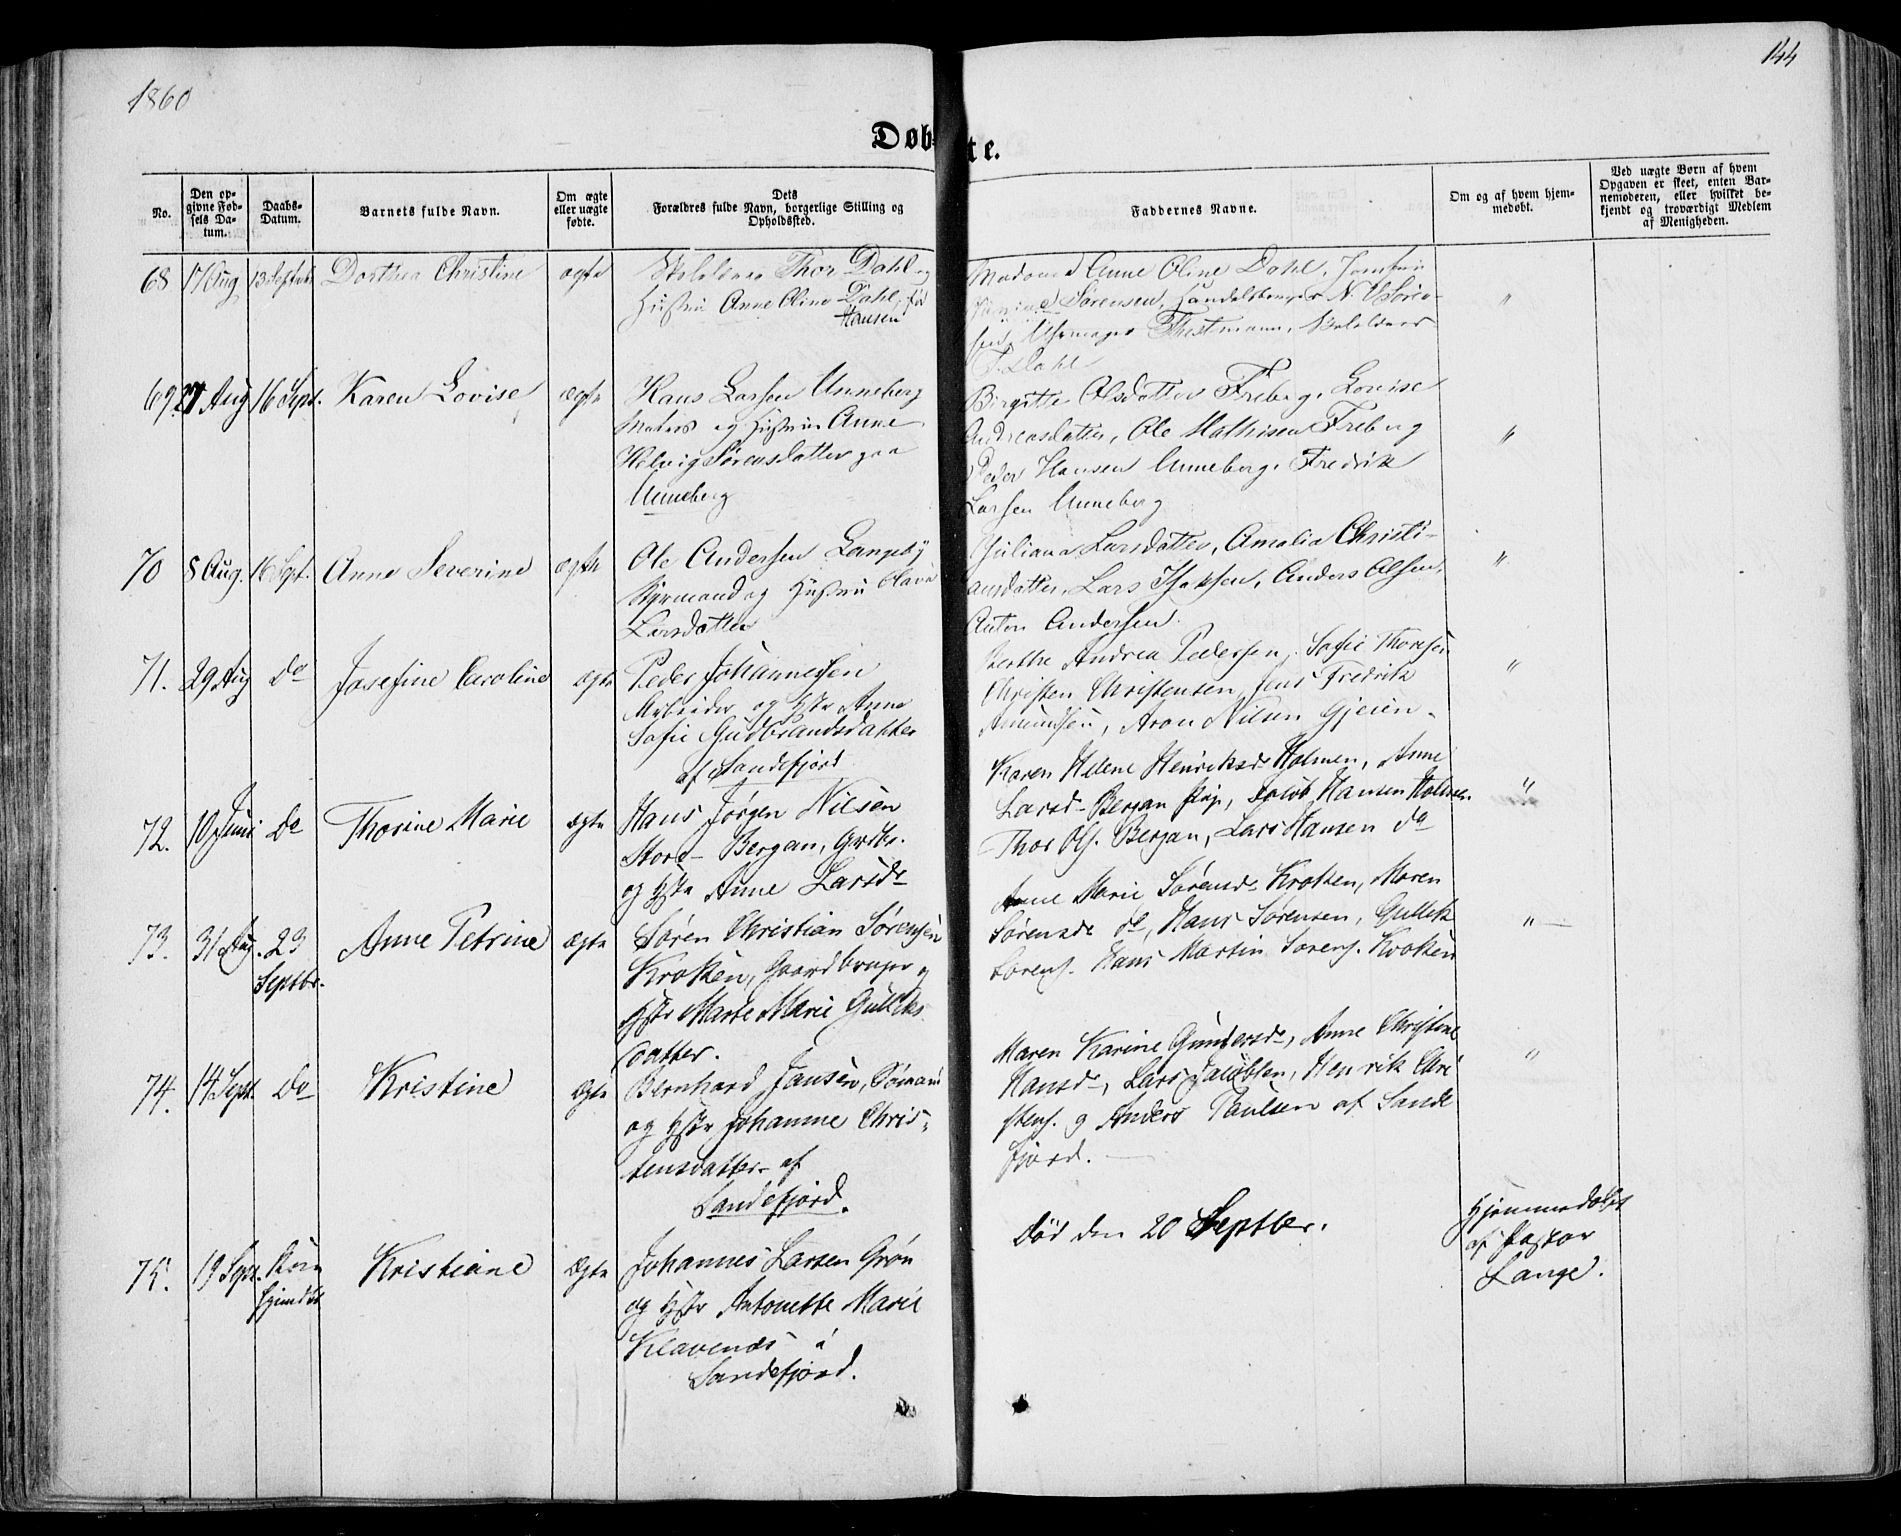 1860
144
Døbte.
No.
Den op-
givne Fød-
sels Da-
tum.
Daabs-
Datum.
Barnets fulde Navn.
Om ægte
eller uægte
fødte.
Dets
Forældres fulde Navn, borgerlige Stilling og
Opholdssted.
Faddernes Navne.
Om og af hvem hjem-
medøbt.
Ved uægte Børn af hvem
Opgaven er skeet, enten Bar-
nemoderen, eller hvilket be-
kjendt og troværdigt Medlem
af Menigheden.
68 17 Aug 13 Septbr Dorthea Christine ægte
Skolelærer Thor Dahl og
Hustru Anne Oline Dahl, fød
Hansen
Madame Anne Oline Dahl, Jomfru
Sørensen, Handelsborger N. V Søren-
sen, Uhrmager Thestmann, Skolelærer
T. Dahl
"
69. 27 Aug 16 Sept. Karen Lovise ægte
Hans Larsen Unneberg
Matros og Hustru Anne
Helvig Sørensdatter paa
Unneberg
Birgitte Olsdatter Freberg, Lovise
Andreasdatter, Ole Mathisen Freberg
Peder Hansen Unneberg, Fredrik
Larsen Unneberg
"
70 8 Aug. 16 Sept. Anne Severine ægte
Ole Andersen Langeby
Styrmand og Hustru Olava
Larsdatter
Juliana Larsdatter, Amalia Christi-
ansdatter, Lars Isaksen, Anders Olsen,
Anton Andersen.
"
71. 29 Aug do Josefine Caroline ægte
Peder Johannesen
Arbeider og Hstr Anne
Sofie Gudbrandsdatter
af Sandefjord
Berthe Andrea Pedersen, Sofie Thoresen
Christen Christensen, Jens Fredrik
Amundsen, Aron Nilsen Gjeien.
"
72. 10 Juni do Thorine Marie ægte
Hans Jørgen Nilsen
Store-Bergan, Grdbr.
og Hstr Anne Larsdr
Karen Helene Henriksdr Holmen, Anne
Larsd- Bergan Pige, Jakob Hansen Holmen
Thor Ols. Bergan, Lars Hansen do
"
73. 31 Aug. 23
Septbr. Anne Petrine ægte
Søren Christian Sørensen
Krokken, Gaardbruger og
Hstr Marte Marie Gulliks
datter.
Anne Marie Sørensdr Krokken, Maren
Sørensdr do, Hans Sørensen, Gullek
Sørens. Hans Martin Sørens. Krokken
"
74. 14 Sept. do Kristine Ægte
Bernhard Jansen, Sømand
og Hstr Johanne Chris-
tensdatter af
Sandefjord.
Maren Karine Gundersdr, Anne Christine
Hansd-, Lars Jacobsen, Henrik Chri
stens. og Anders Paulsen af Sande
fjord.
"
75. 19 Sept. Kun
hjemdøbt Kristiane Ægte
Johannes Larsen Grøn
og Hstr Antonette Marie
Klavenæs i
Sandefjord.
død den 20 Septber.
Hjemmedøbt
af Pastor
Lange.